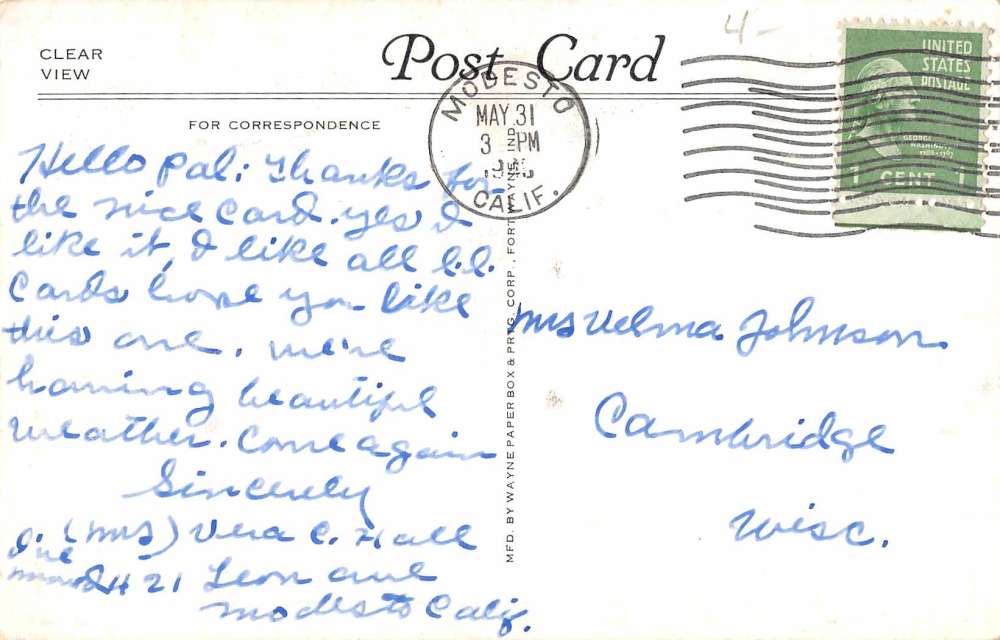 4-
CLEAR
VIEW
Post Card
FOR CORRESPONDENCE
MODESTO
MAY 31
3 PM
CALIF.
UNITED
STATES
POSTAGE
GEORGE
WASHINGTON
1789-1797
1 CENT 1
Hello Pal: Thanks for
the nice card. yes I
like it, I like all l.l.
Cards hope you like
this one. we're
having beautiful
weather. Come again
Sincerely
(Mrs) Vera C. Hall
I've
moved
21 Leon ave
Modesto Calif.
MFD. BY WAYNE PAPER BOX & PRTG. CORP., FORT WAYNE, IND
Mrs Velma Johnson.
Cambridge
Wisc.